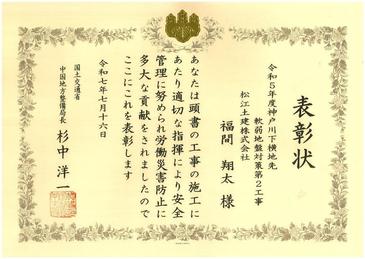 表彰状
令和5年度神戸川下横地先
軟弱地盤対策第2工事
松江土建株式会社
福間 翔太 様
あなたは頭書の工事の施工に
あたり適切な指揮により安全
管理に努められ労働災害防止に
多大な貢献をされましたので
ここにこれを表彰します
令和七年七月十六日
国土交通省
中国地方整備局長 杉中 洋一